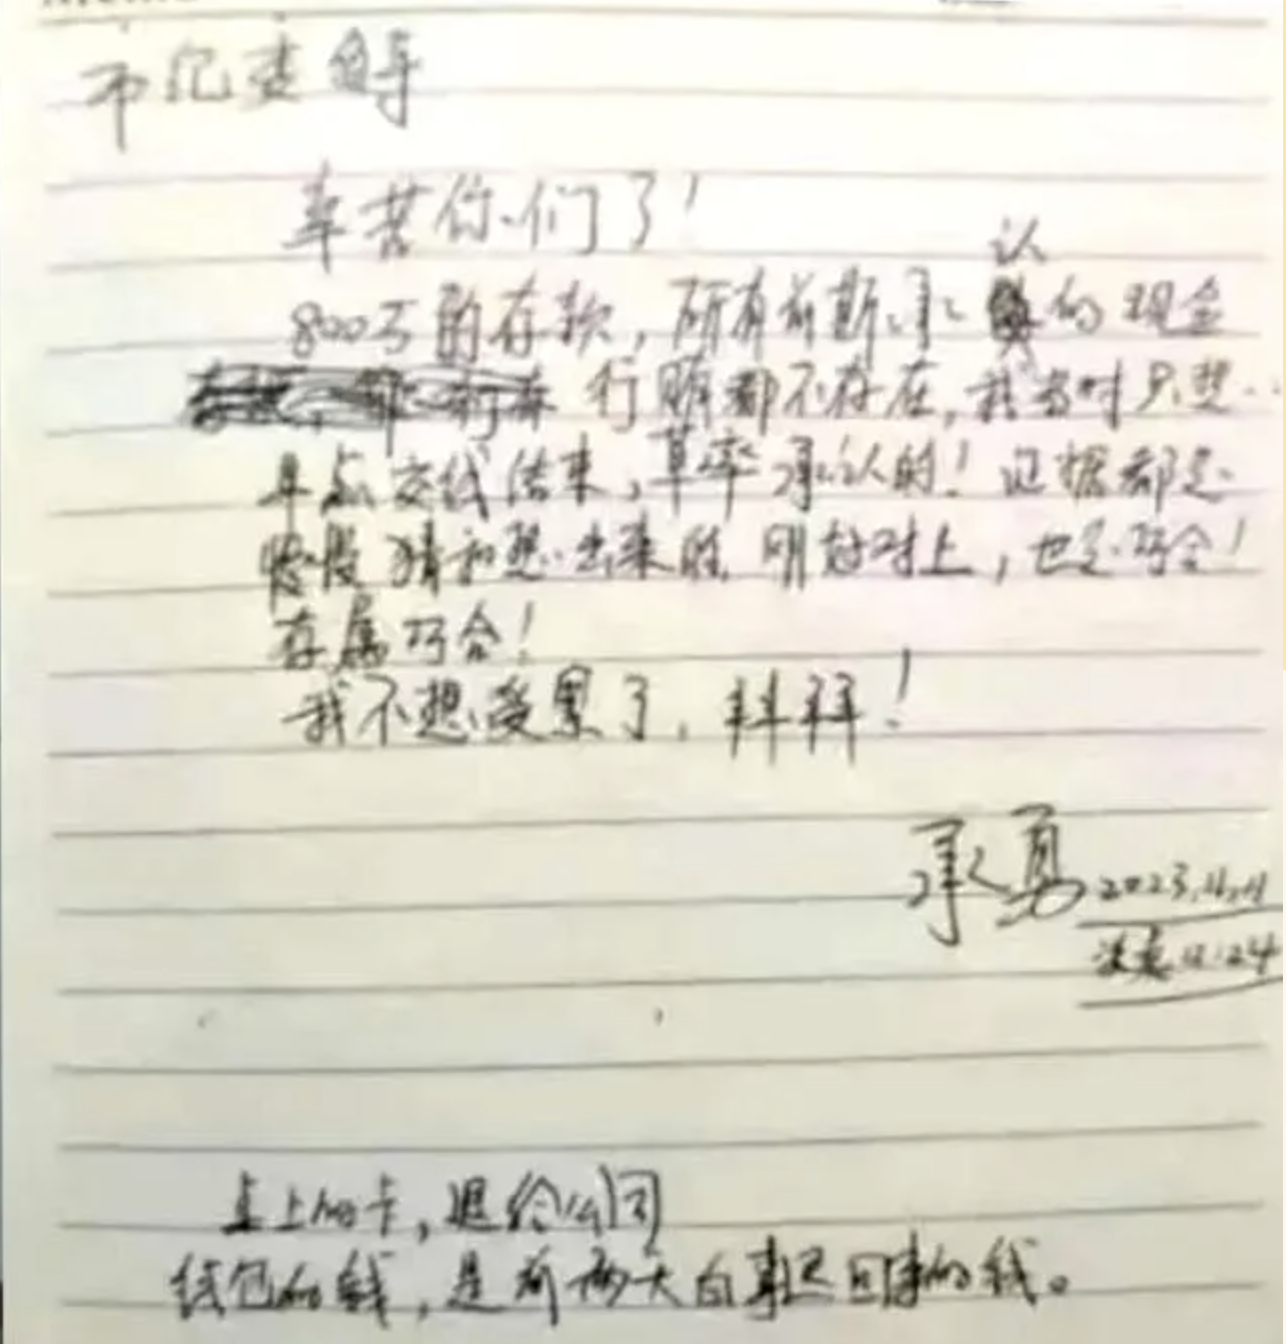 市纪委领导
辛苦你们了!
认
800万的存款,所有前期承的现金
行贿都不存在,我当时只想
早点交线结束,草率承认的!证据都是
慢慢猜和想出来的 刚好对上,也是巧合!
存属巧合!
我不想受累了,拜拜!
承勇 2023.4.4
凌晨 12:24
桌上的卡,退给公司
钱包的钱,是前两天白事退回来的钱。